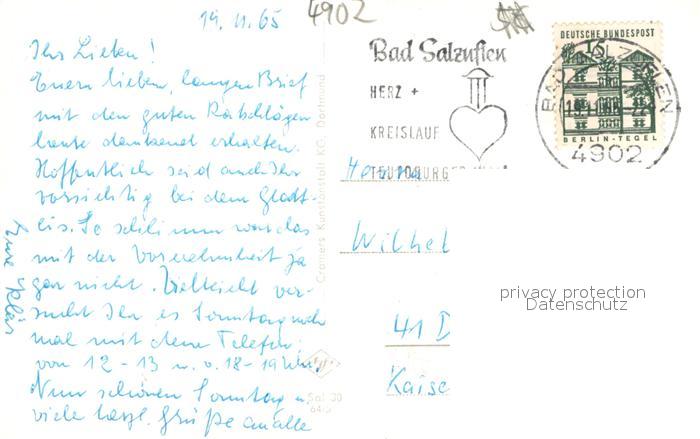 19.11.65
4902
Ihr Lieben!
Euern lieben, langen Brief
mit den guten Ratschlägen
heute dankend erhalten.
Hoffentlich seid auch Ihr
vorsichtig bei dem Glatt-
eis. So schlimm war das
mit der Vornehmheit ja
gar nicht. Vielleicht ver-
sucht Ihr es Sonntag noch
mal mit dem Telefon:
von 12-13 u. v. 18-19 Uhr.
Nun schönen Sonntag u.
viele herzl. Grüße an alle
Eure
Cramers Kunstanstalt KG, Dortmund
Sal 30
Bad Salzuflen
HERZ +
KREISLAUF
TEUTOBURGER
DEUTSCHE BUNDESPOST
15
BERLIN-TEGEL
BAD SALZUFLEN
4902
Herrn
Wilhel
41 D
Kaise
privacy protection
Datenschutz